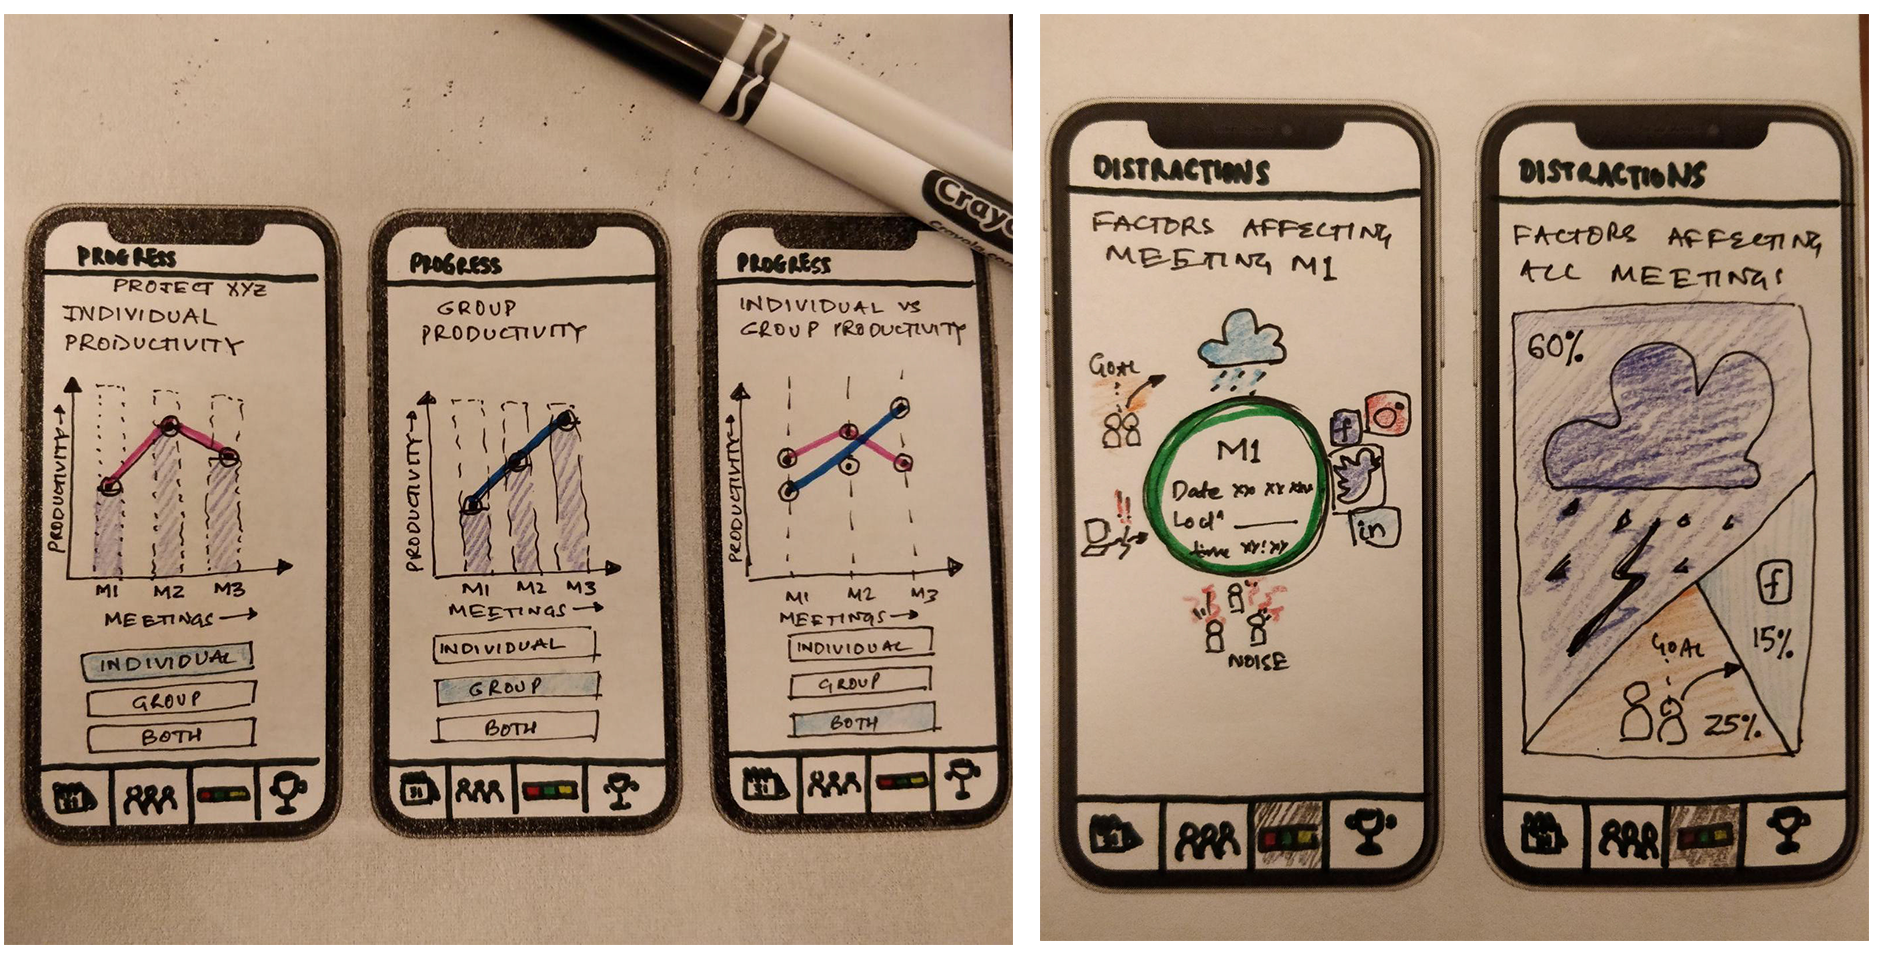 Crayo
Crayola.com
PROGRESS
PROJECT XYZ
INDIVIDUAL
PRODUCTIVITY
PRODUCTIVITY
M1 M2 M3
MEETINGS
INDIVIDUAL
GROUP
BOTH
31
PROGRESS
GROUP
PRODUCTIVITY
PRODUCTIVITY
M1 M2 M3
MEETINGS
INDIVIDUAL
GROUP
BOTH
31
PROGRESS
INDIVIDUAL VS
GROUP PRODUCTIVITY
PRODUCTIVITY
M1 M2 M3
MEETINGS
INDIVIDUAL
GROUP
BOTH
31
DISTRACTIONS
FACTORS AFFECTING
MEETING M1
GOAL
f
in
M1
Date xx xx xxx
Locⁿ
time xy:xy
!!
NOISE
31
DISTRACTIONS
FACTORS AFFECTING
ALL MEETINGS
60%
f
15%
GOAL
25%
31